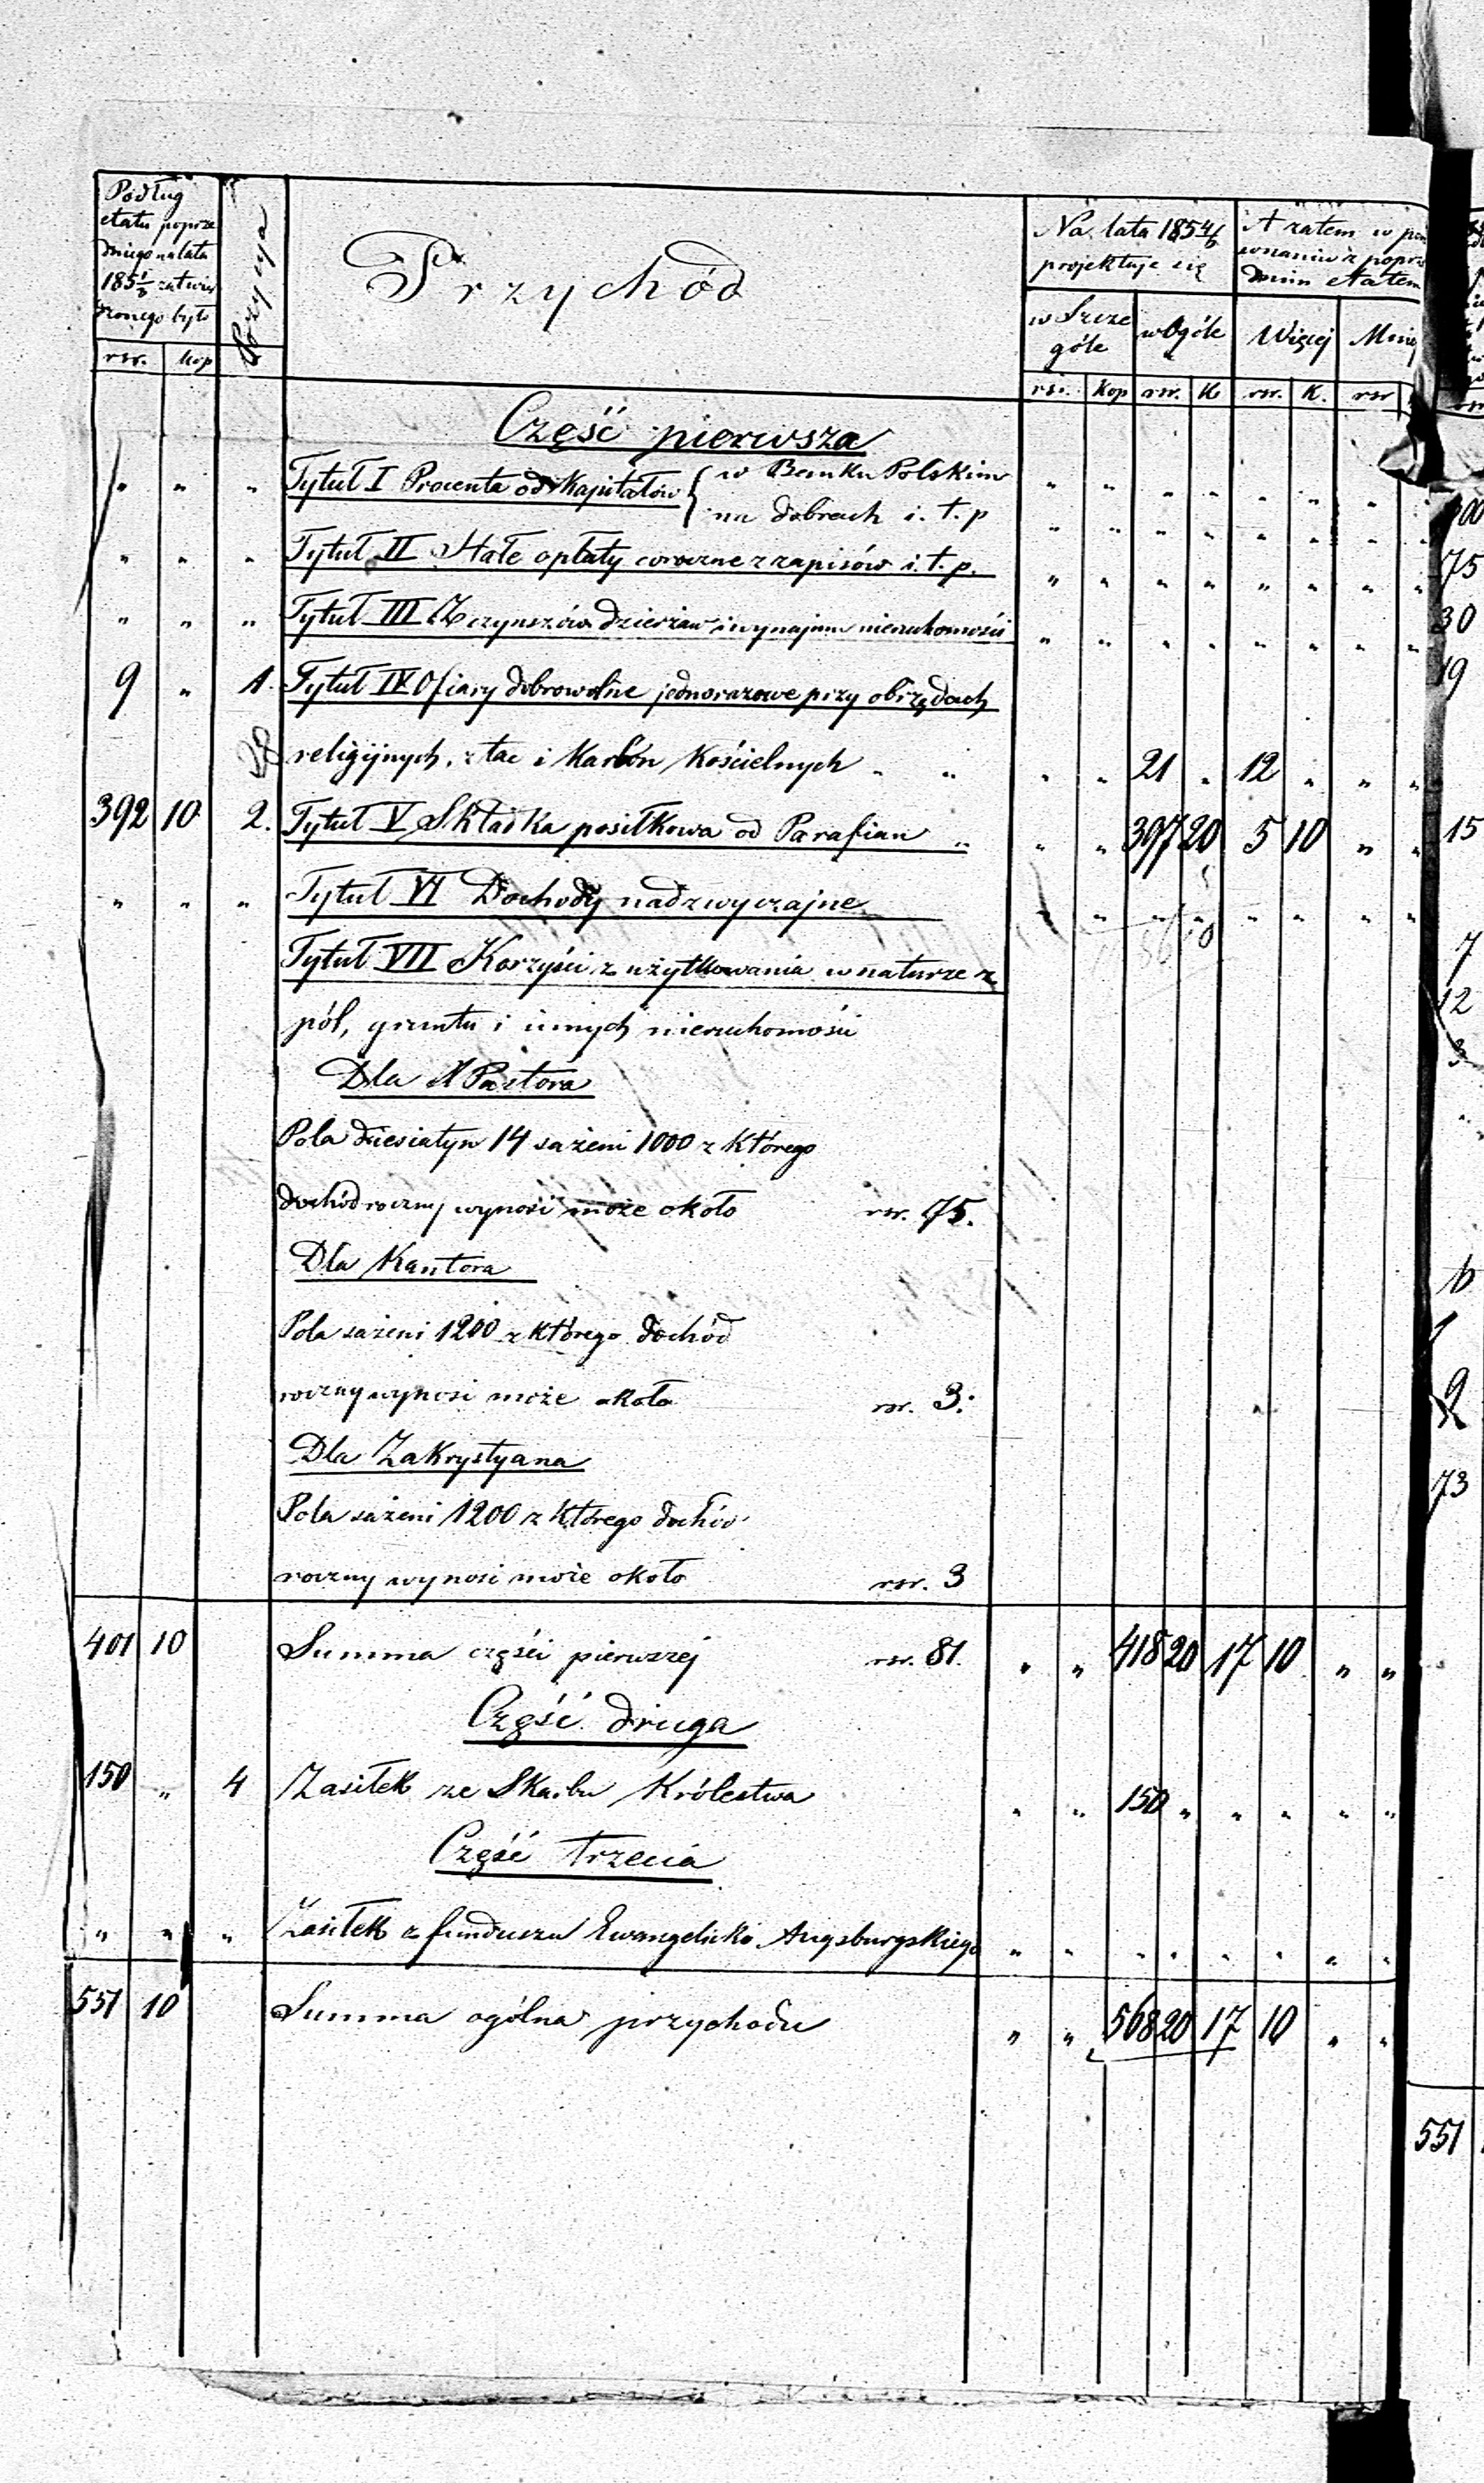 Podług
etatu poprze
dniego na lata
185 1/3 zatwier
dzonego było
rsr. kop
Pozycya
Przychód
Na lata 185 4/6
projektuje się
w Szcze
góle
w Ogóle
rsr. kop rsr. K
A zatem w poró
wnaniu z poprze
dnim etatem
Więcej Mniej
rsr. K. rsr
Część pierwsza
" " " Tytuł I Procenta od Kapitałów { w Banku Polskim " " " " " " " "
na dobrach i. t. p " " " " " " " "
" " " Tytuł II Stałe opłaty coroczne z zapisów i. t. p. " " " " " " " "
" " " Tytuł III Z czynszów dzierżaw i wynajmu nieruchomości " " " " " " " "
9 " 1. Tytuł IV Ofiary dobrowolne jednorazowe przy obrzędach
religijnych, z tac i Karbon Kościelnych " " " " 21 " 12 " " "
392 10 2. Tytuł V Składka posiłkowa od Parafian " " " 397 20 5 10 " "
" " " Tytuł VI Dochody nadzwyczajne " " " " " " " "
Tytuł VII Korzyści z użytkowania w naturze z
pól, gruntu i innych nieruchomości
Dla X Pastora
Pola dziesiatyn 14 sażeni 1000 z którego
dochód roczny wynosi może około rsr. 75.
Dla Kantora
Pola sażeni 1200 z którego dochód
roczny wynosi może około rsr. 3.
Dla Zakrystyana
Pola sażeni 1200 z którego dochód
roczny wynosi może około rsr. 3
401 10 Summa części pierwszej rsr. 81. " " 418 20 17 10 " "
Część druga
150 " 4 Zasiłek ze Skarbu Królestwa " " 150 " " " " "
Część trzecia
" " " Zasiłek z funduszu Ewangelicko Augsburgskiego " " " " " " " "
551 10 Summa ogólna przychodu " " 568 20 17 10 " "
75
30
19
15
7
12
3
6
1
2
73
551